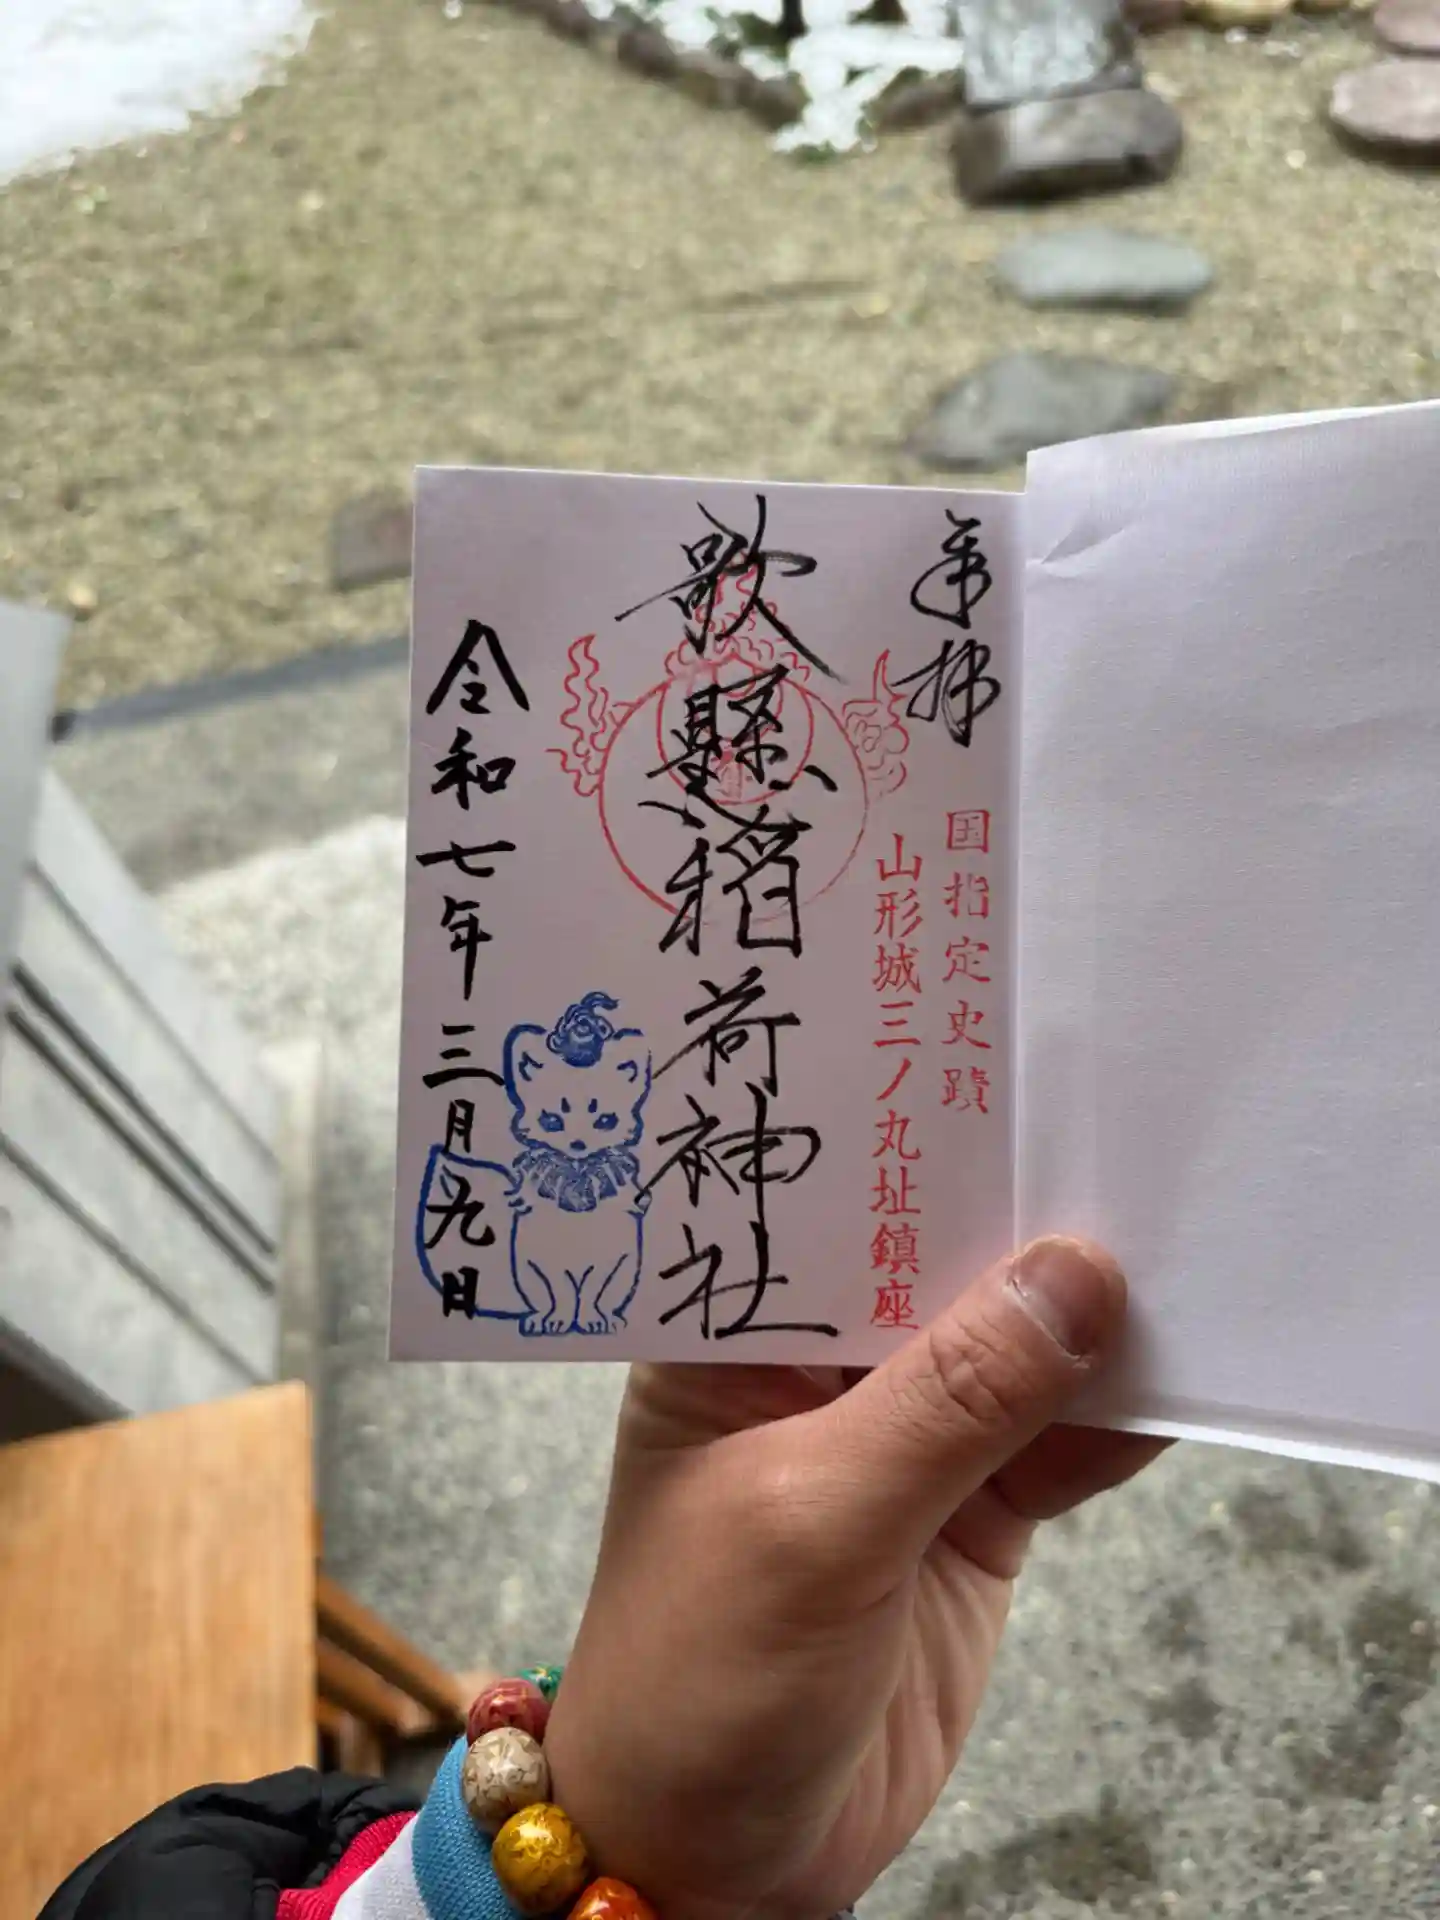 奉拝
国指定史蹟
山形城三ノ丸址鎮座
歌懸稲荷神社
令和七年三月九日